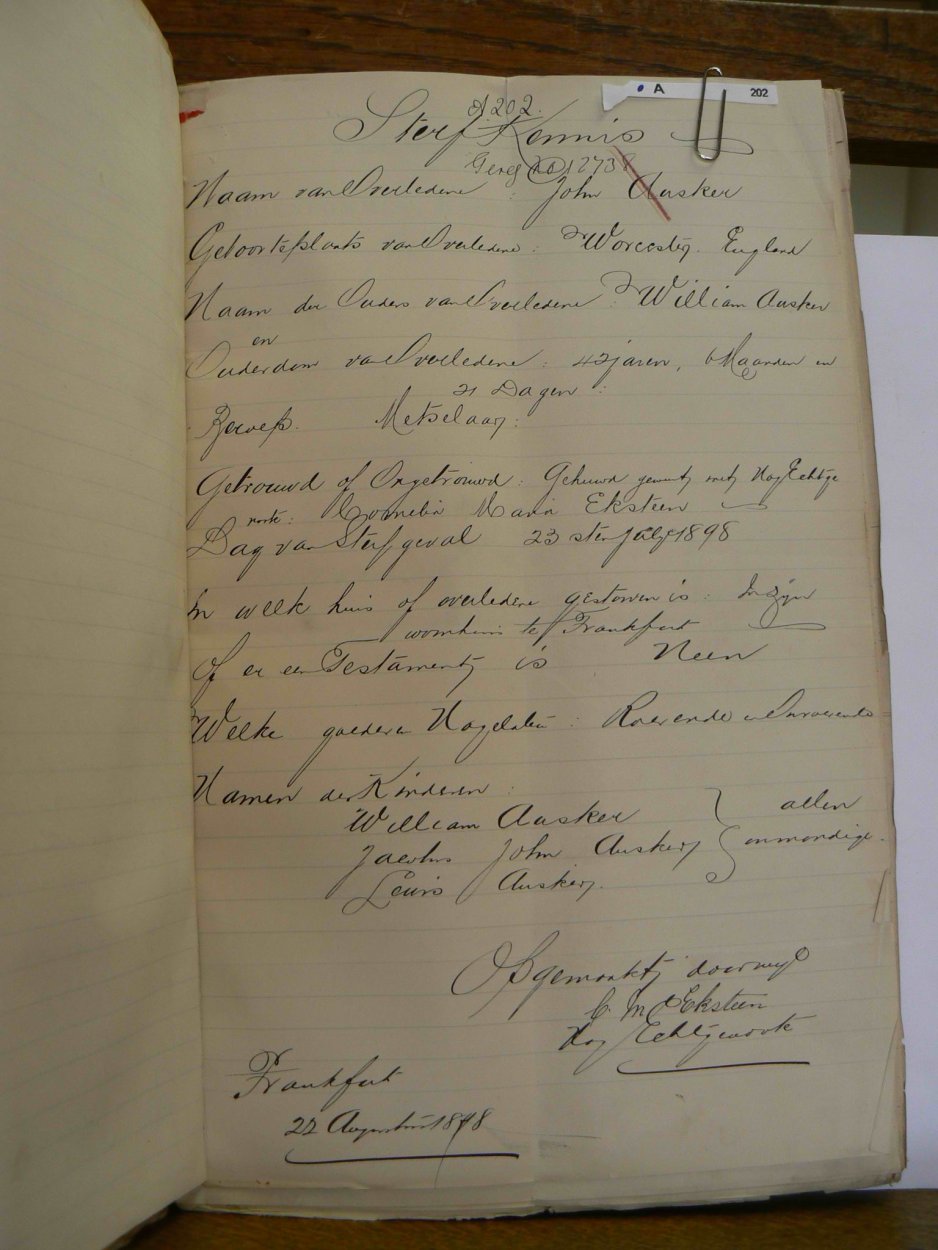 A 202
A202.
Sterf Kennis
Gereg No 1273
Naam van Overledene : John Ausker
Geboorteplaats van Overledene : Worcester. England
Naam der Ouders van Overledene : William Ausker
en
Ouderdom van Overledene : 42 jaren, 6 Maanden en
21 Dagen :
Beroep : Metselaar :
Getrouwd of Ongetrouwd : Gehuwd geweest met Nag Echtge
noote : Cornelia Maria Eksteen
Dag van Sterfgeval 23 sten July 1898
In welk huis of overledene gestorven is : In zijn
woonhuis te Frankfort
Of er een Testament is Neen
Welke goederen Nagelaten : Roerende en Onroerende
Namen der Kinderen :
William Ausker
Jacobus John Ausker } allen
Lewis Ausker. onmondige.
Opgemaakt door my
C. M. Eksteen
Nag Echtgenoote
Frankfort
22 Augustus 1898